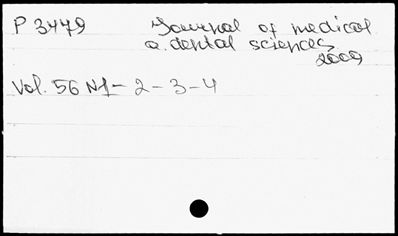 P 3479 Journal of medical
a. dental sciences
2009
Vol. 56 N1-2-3-4